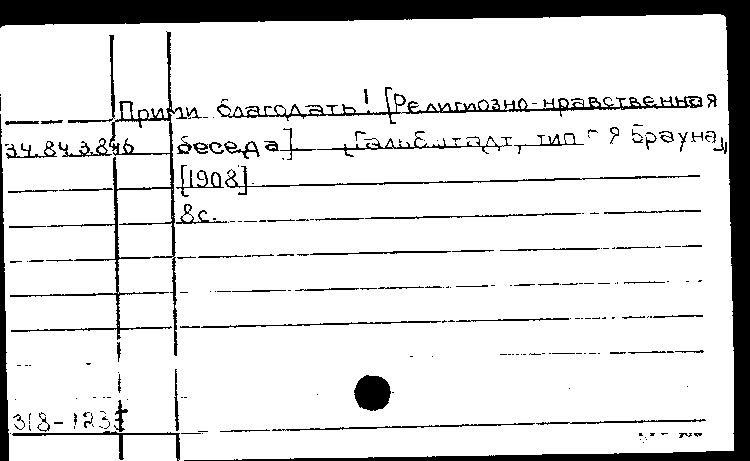 Прими благодать! [Религиозно-нравственная
34.84.3.846 беседа] [Гальбштадт, тип. Я Брауна],
[1908]
8с.
318-1235